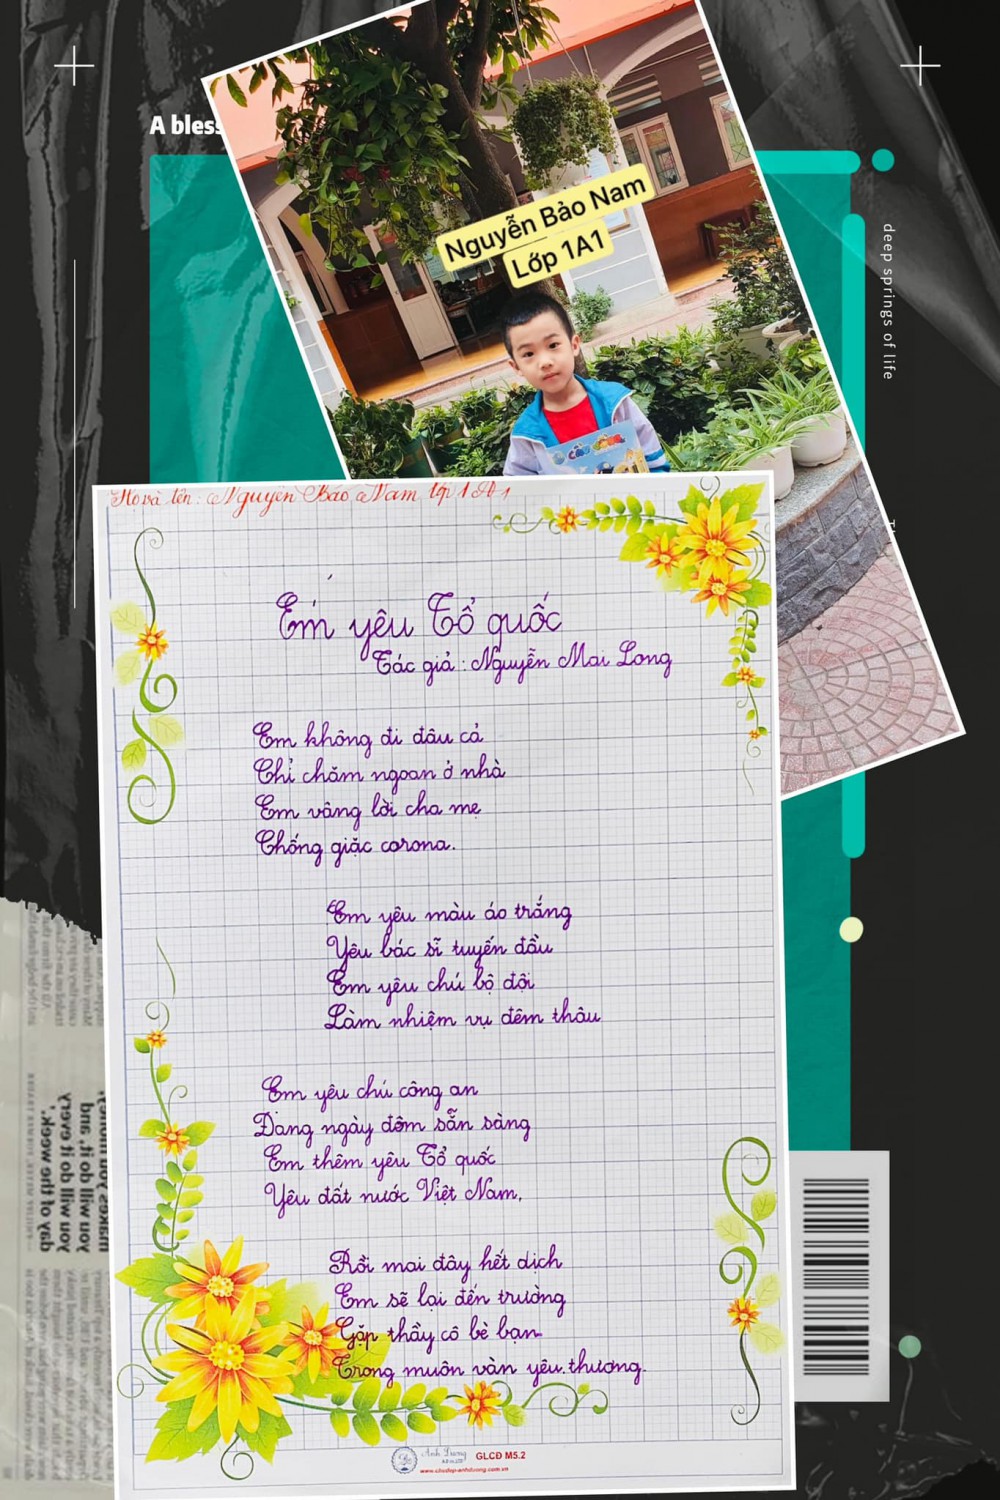 A bless
Nguyễn Bảo Nam
Lớp 1A1
deep springs of life
Họ và tên: Nguyễn Bảo Nam lớp 1A1
Em yêu Tổ quốc
Tác giả: Nguyễn Mai Long
Em không đi đâu cả
Chỉ chăm ngoan ở nhà
Em vâng lời cha mẹ
Chống giặc corona.
Em yêu màu áo trắng
Yêu bác sĩ tuyến đầu
Em yêu chú bộ đội
Làm nhiệm vụ đêm thâu
Em yêu chú công an
Đang ngày đêm sẵn sàng
Em thêm yêu Tổ quốc
Yêu đất nước Việt Nam,
Rồi mai đây hết dịch
Em sẽ lại đến trường
Gặp thầy cô bè bạn
Trong muôn vàn yêu thương.
Ánh Dương
GLCĐ M5.2
www.chudep-anhduong.com.vn
day to the week,
you will do it every
you will do it, and